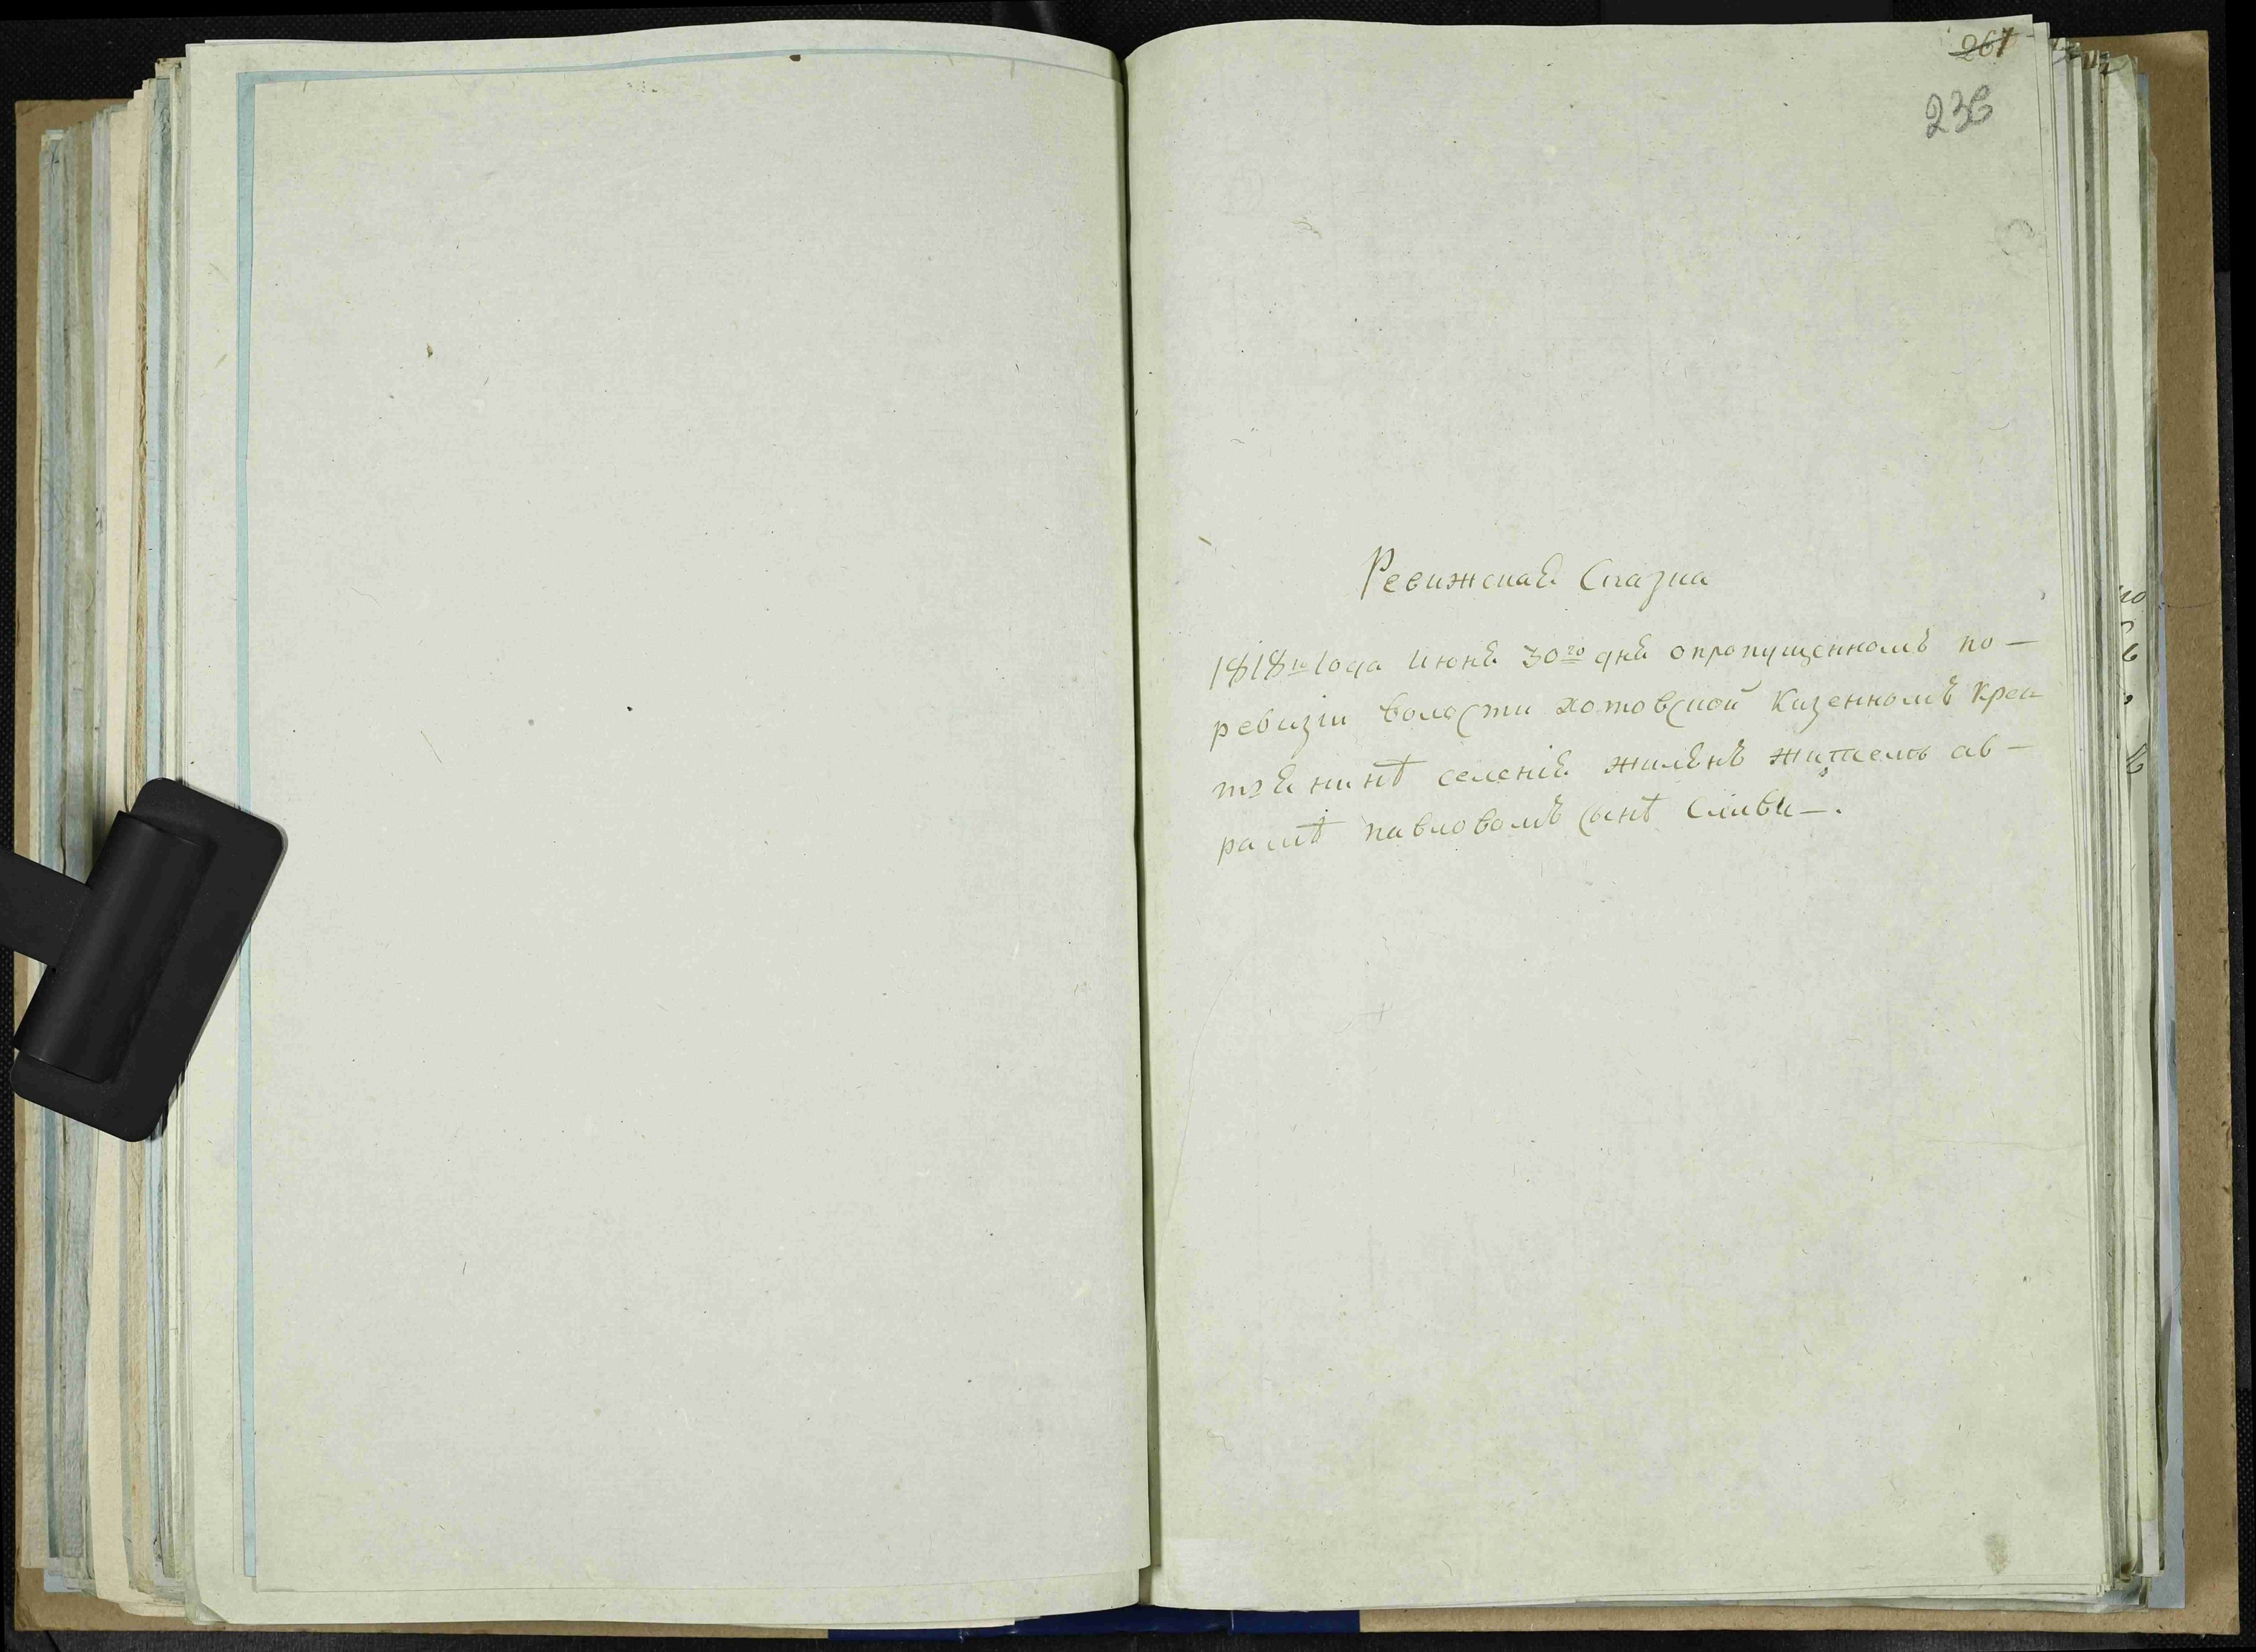 267
236
Ревижскаѣ Сказка
1818го Года Июнѣ 30го днѣ опропущенномъ по—
ревизіи волости хотовской Казенномъ Крес
тьѣнинѣ селеніѣ жилѣнъ жителъ ав—
рамѣ павловомъ сынѣ